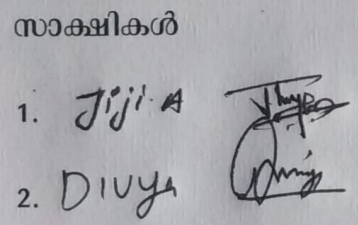 സാക്ഷികൾ
1. Jiji A
2. Divya